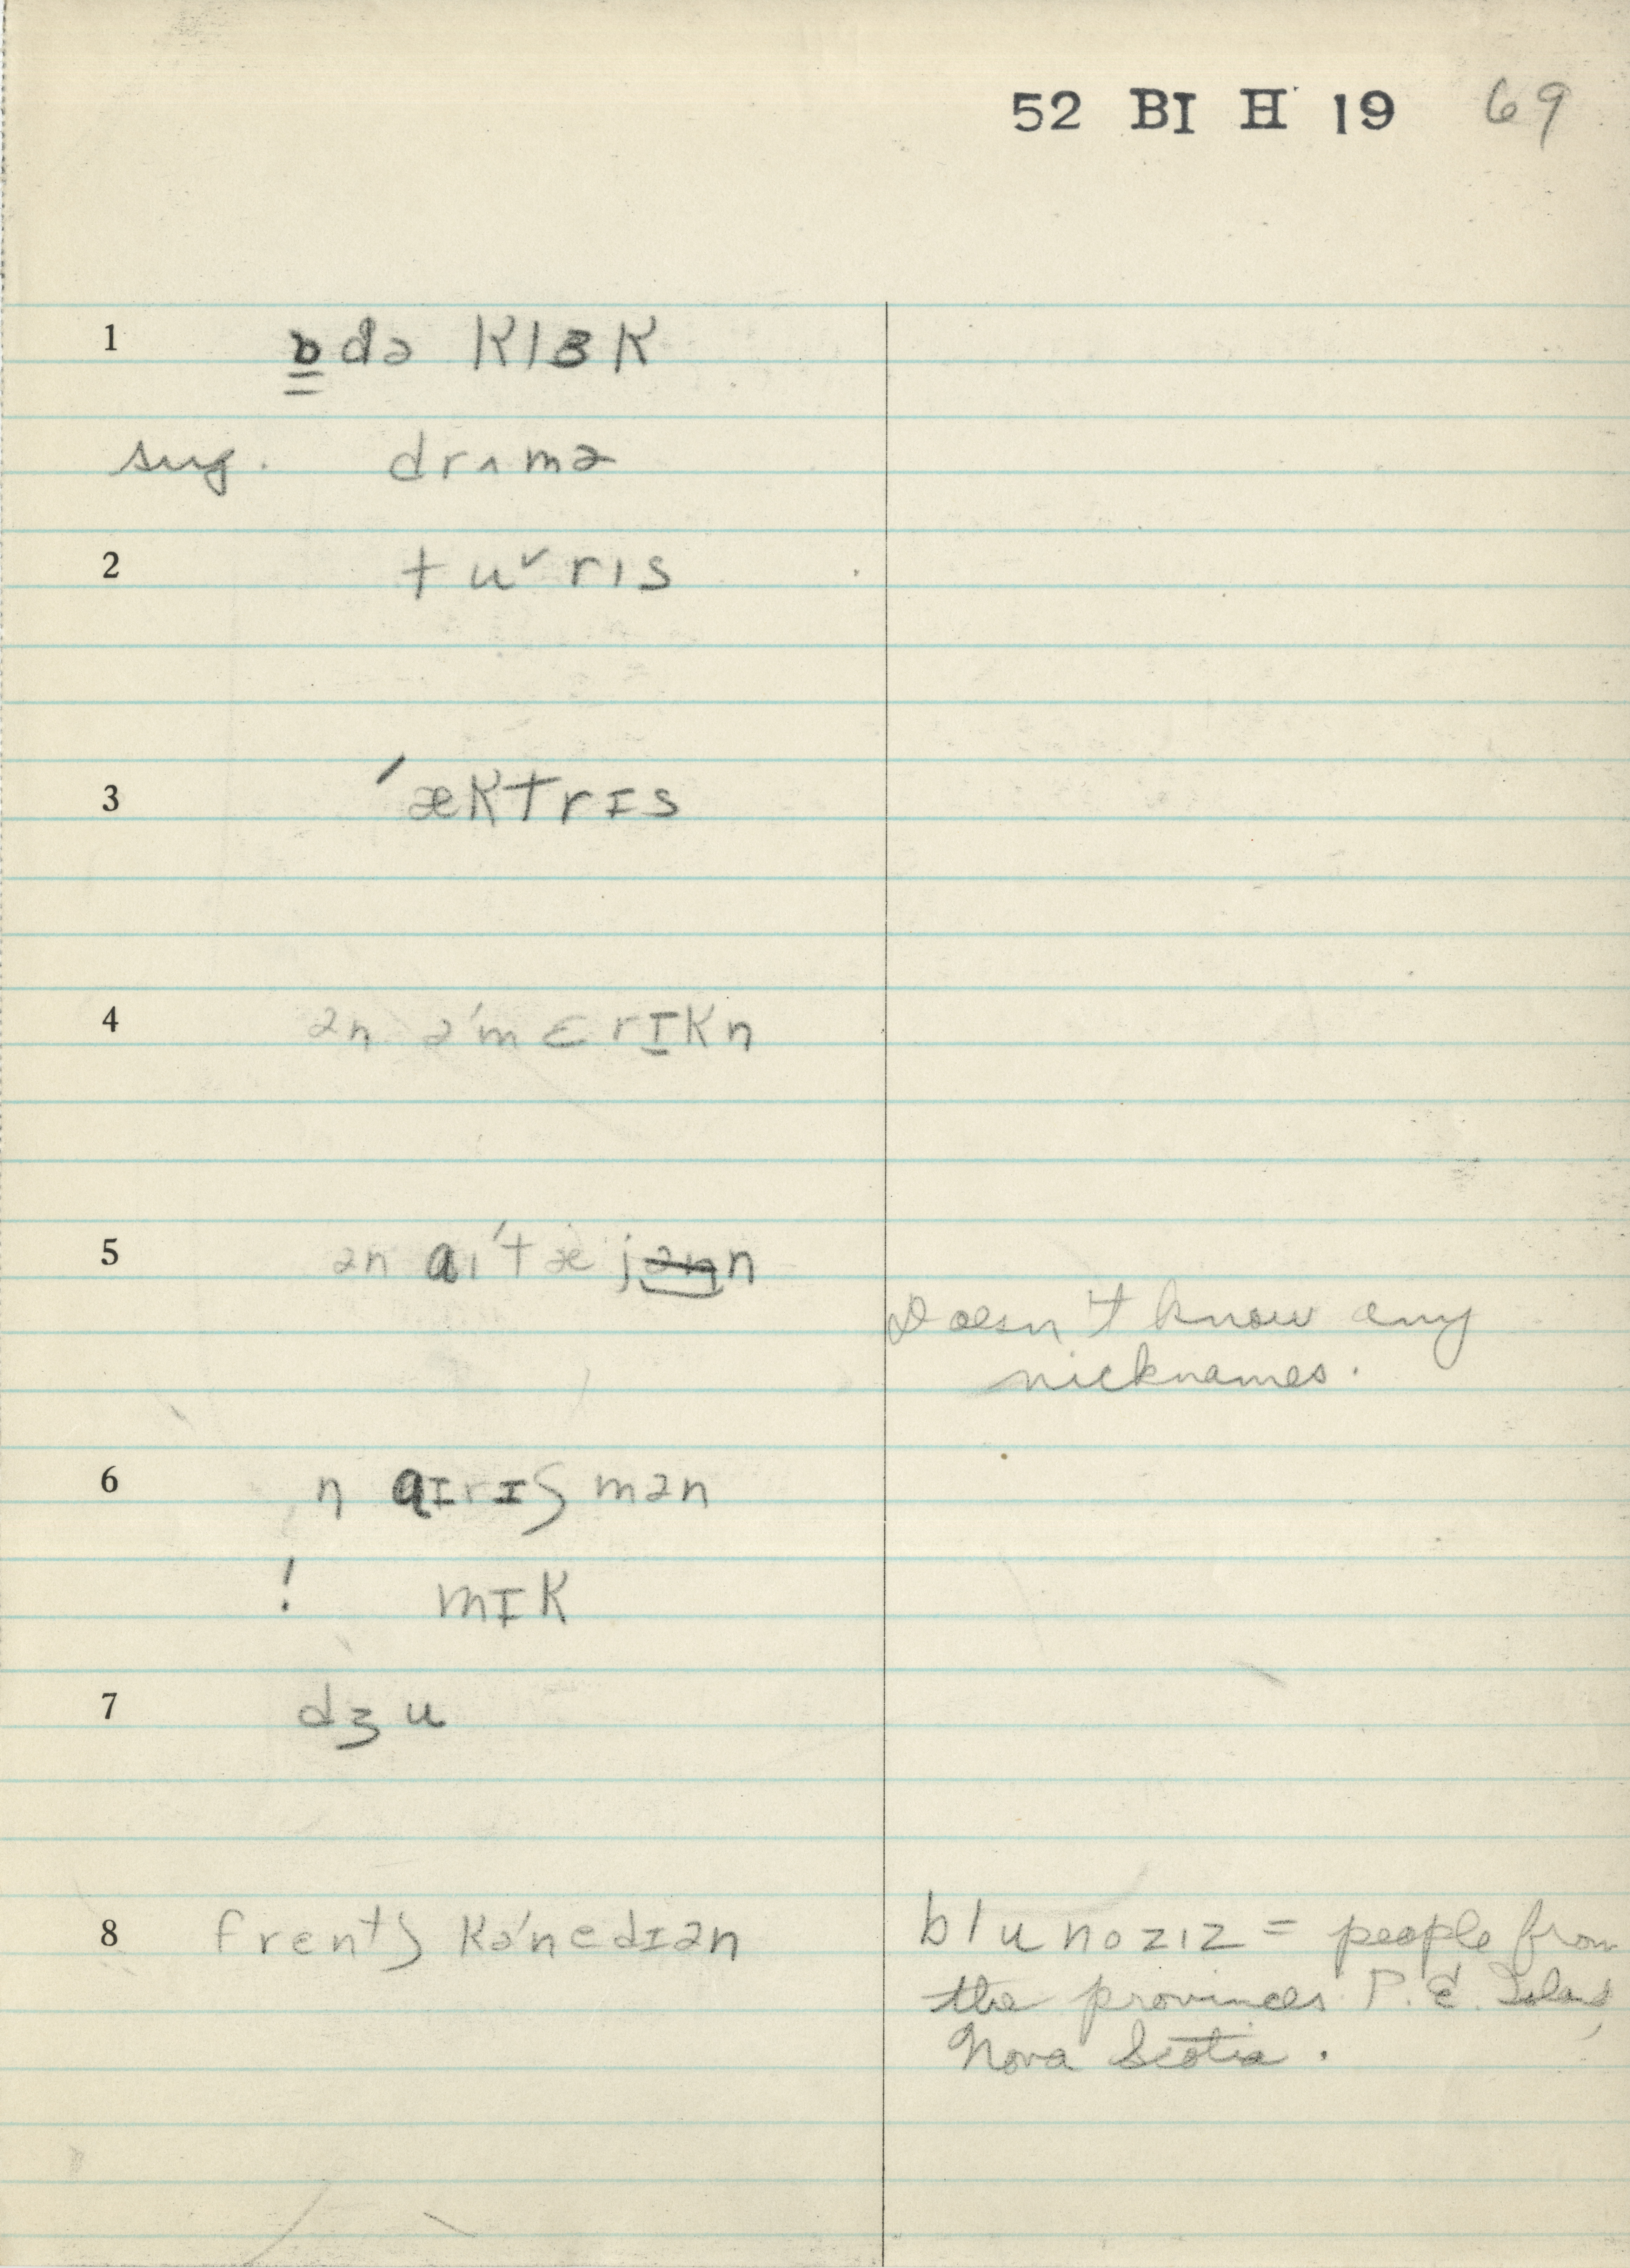 52 BI H 19 69
1 ɒdə klɜk
sug. drʌmə
2 tuˇrɪs
3 ′æktrɪs
4 ən ə′mɛrɪkn
5 ən aɪ′tæjən
Doesn't know any
nicknames.
6 n aɪrɪʃmən
! mɪk
7 dʒu
8 frentʃ kə′nedɪən
blunozɪz = people from
the provinces P. E. Island,
Nova Scotia.